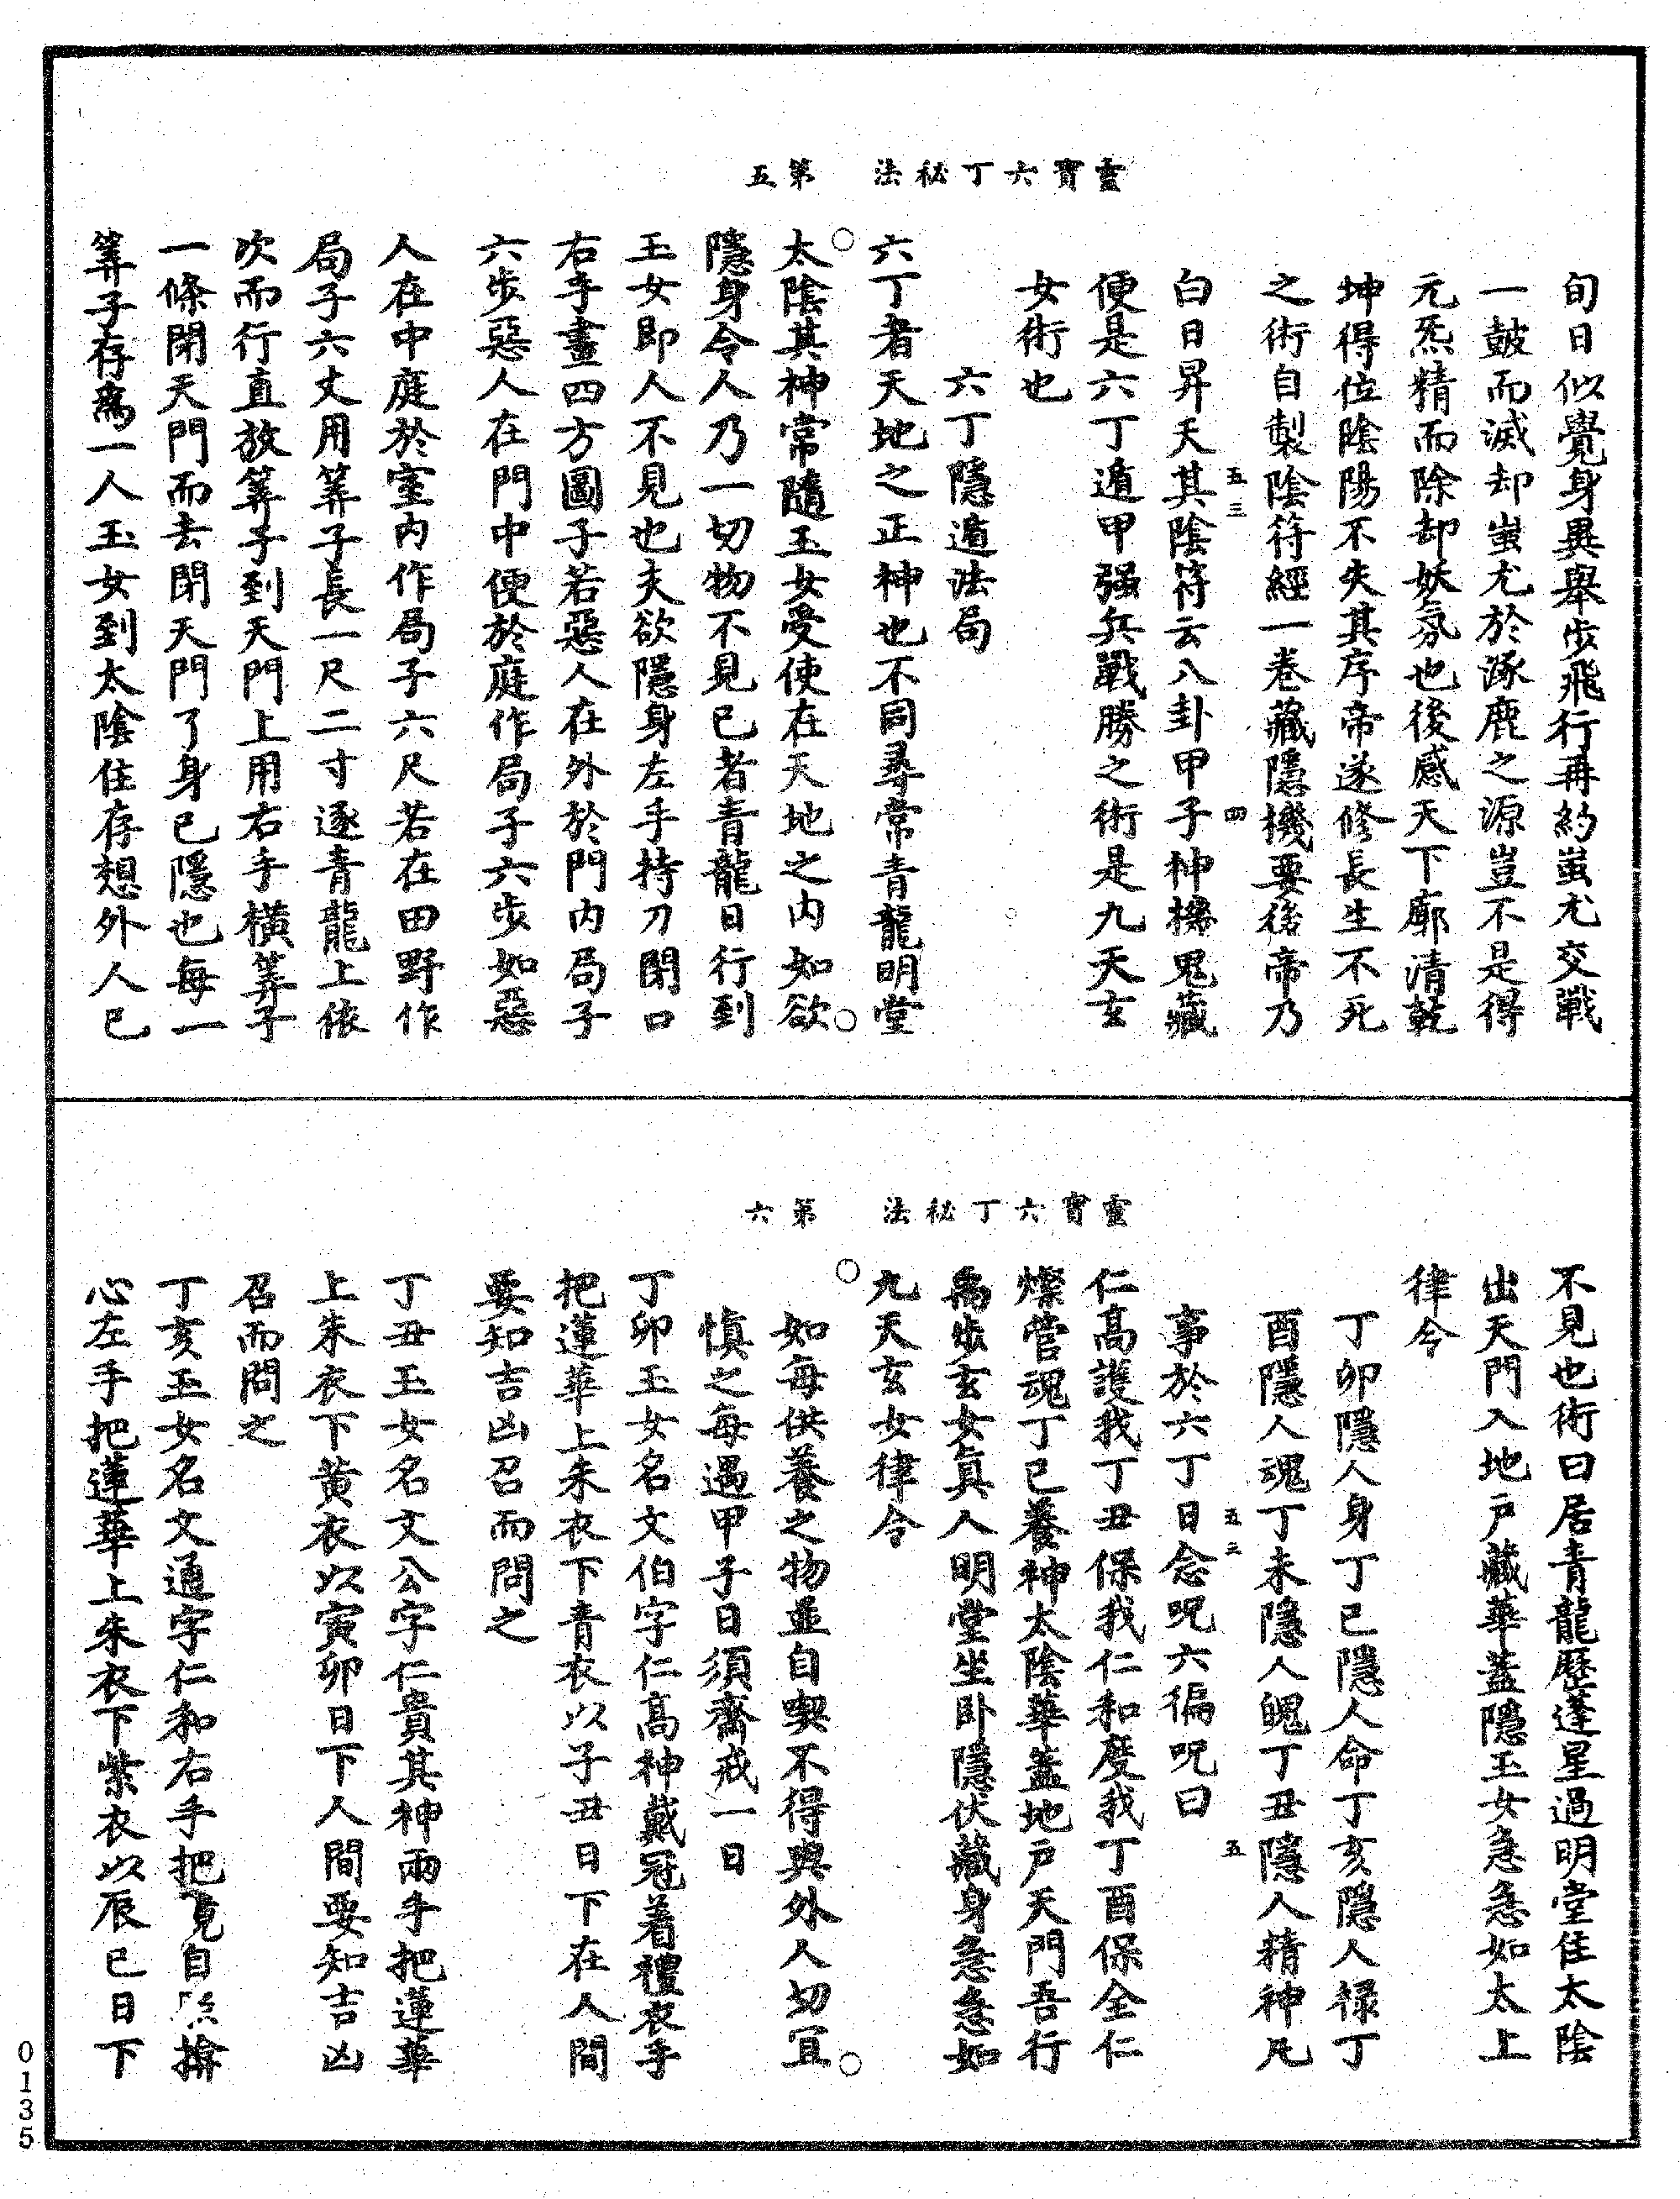 靈寶六丁秘法　第五
旬日似覺身異舉步飛行再約蚩尤交戰
一鼓而滅却蚩尤於涿鹿之源豈不是得
元炁精而除却妖氛也後感天下廓清乾
坤得位陰陽不失其序帝遂修長生不死
之術自製陰符經一卷藏隱機要後帝乃
五三
四
白日昇天其陰符云八卦甲子神機鬼藏
便是六丁遁甲强兵戰勝之術是九天玄
女術也
六丁隱遁法局
六丁者天地之正神也不同尋常青龍明堂
太陰其神常隨玉女受使在天地之內如欲
隱身令人乃一切物不見已者青龍日行到
玉女即人不見也夫欲隱身左手持刀閉口
右手畫四方圖子若惡人在外於門內局子
六步惡人在門中便於庭作局子六步如惡
人在中庭於室內作局子六尺若在田野作
局子六丈用筭子長一尺二寸逐青龍上依
次而行直放筭子到天門上用右手橫筭子
一條閉天門而去閉天門了身已隱也每一
筭子存爲一人玉女到太陰住存想外人已
靈寶六丁秘法　第六
不見也術曰居青龍歷蓬星過明堂住太陰
出天門入地戶藏華蓋隱玉女急急如太上
律令
丁卯隱人身丁巳隱人命丁亥隱人祿丁
酉隱人魂丁未隱人魄丁丑隱人精神凡
五三
五
事於六丁日念呪六徧呪曰
仁高護我丁丑保我仁和度我丁酉保全仁
燦管魂丁巳養神太陰華蓋地戶天門吾行
禹步玄女真人明堂坐臥隱伏藏身急急如
九天玄女律令
如每供養之物並自喫不得與外人切宜
慎之每遇甲子日須齋戒一日
丁卯玉女名文伯字仁高神戴冠着禮衣手
把蓮華上朱衣下青衣以子丑日下在人間
要知吉凶召而問之
丁丑玉女名文公字仁貴其神兩手把蓮華
上朱衣下黃衣以寅卯日下人間要知吉凶
召而問之
丁亥玉女名文通字仁和右手把自照揜
心左手把蓮華上朱衣下紫衣以辰巳日下
0135